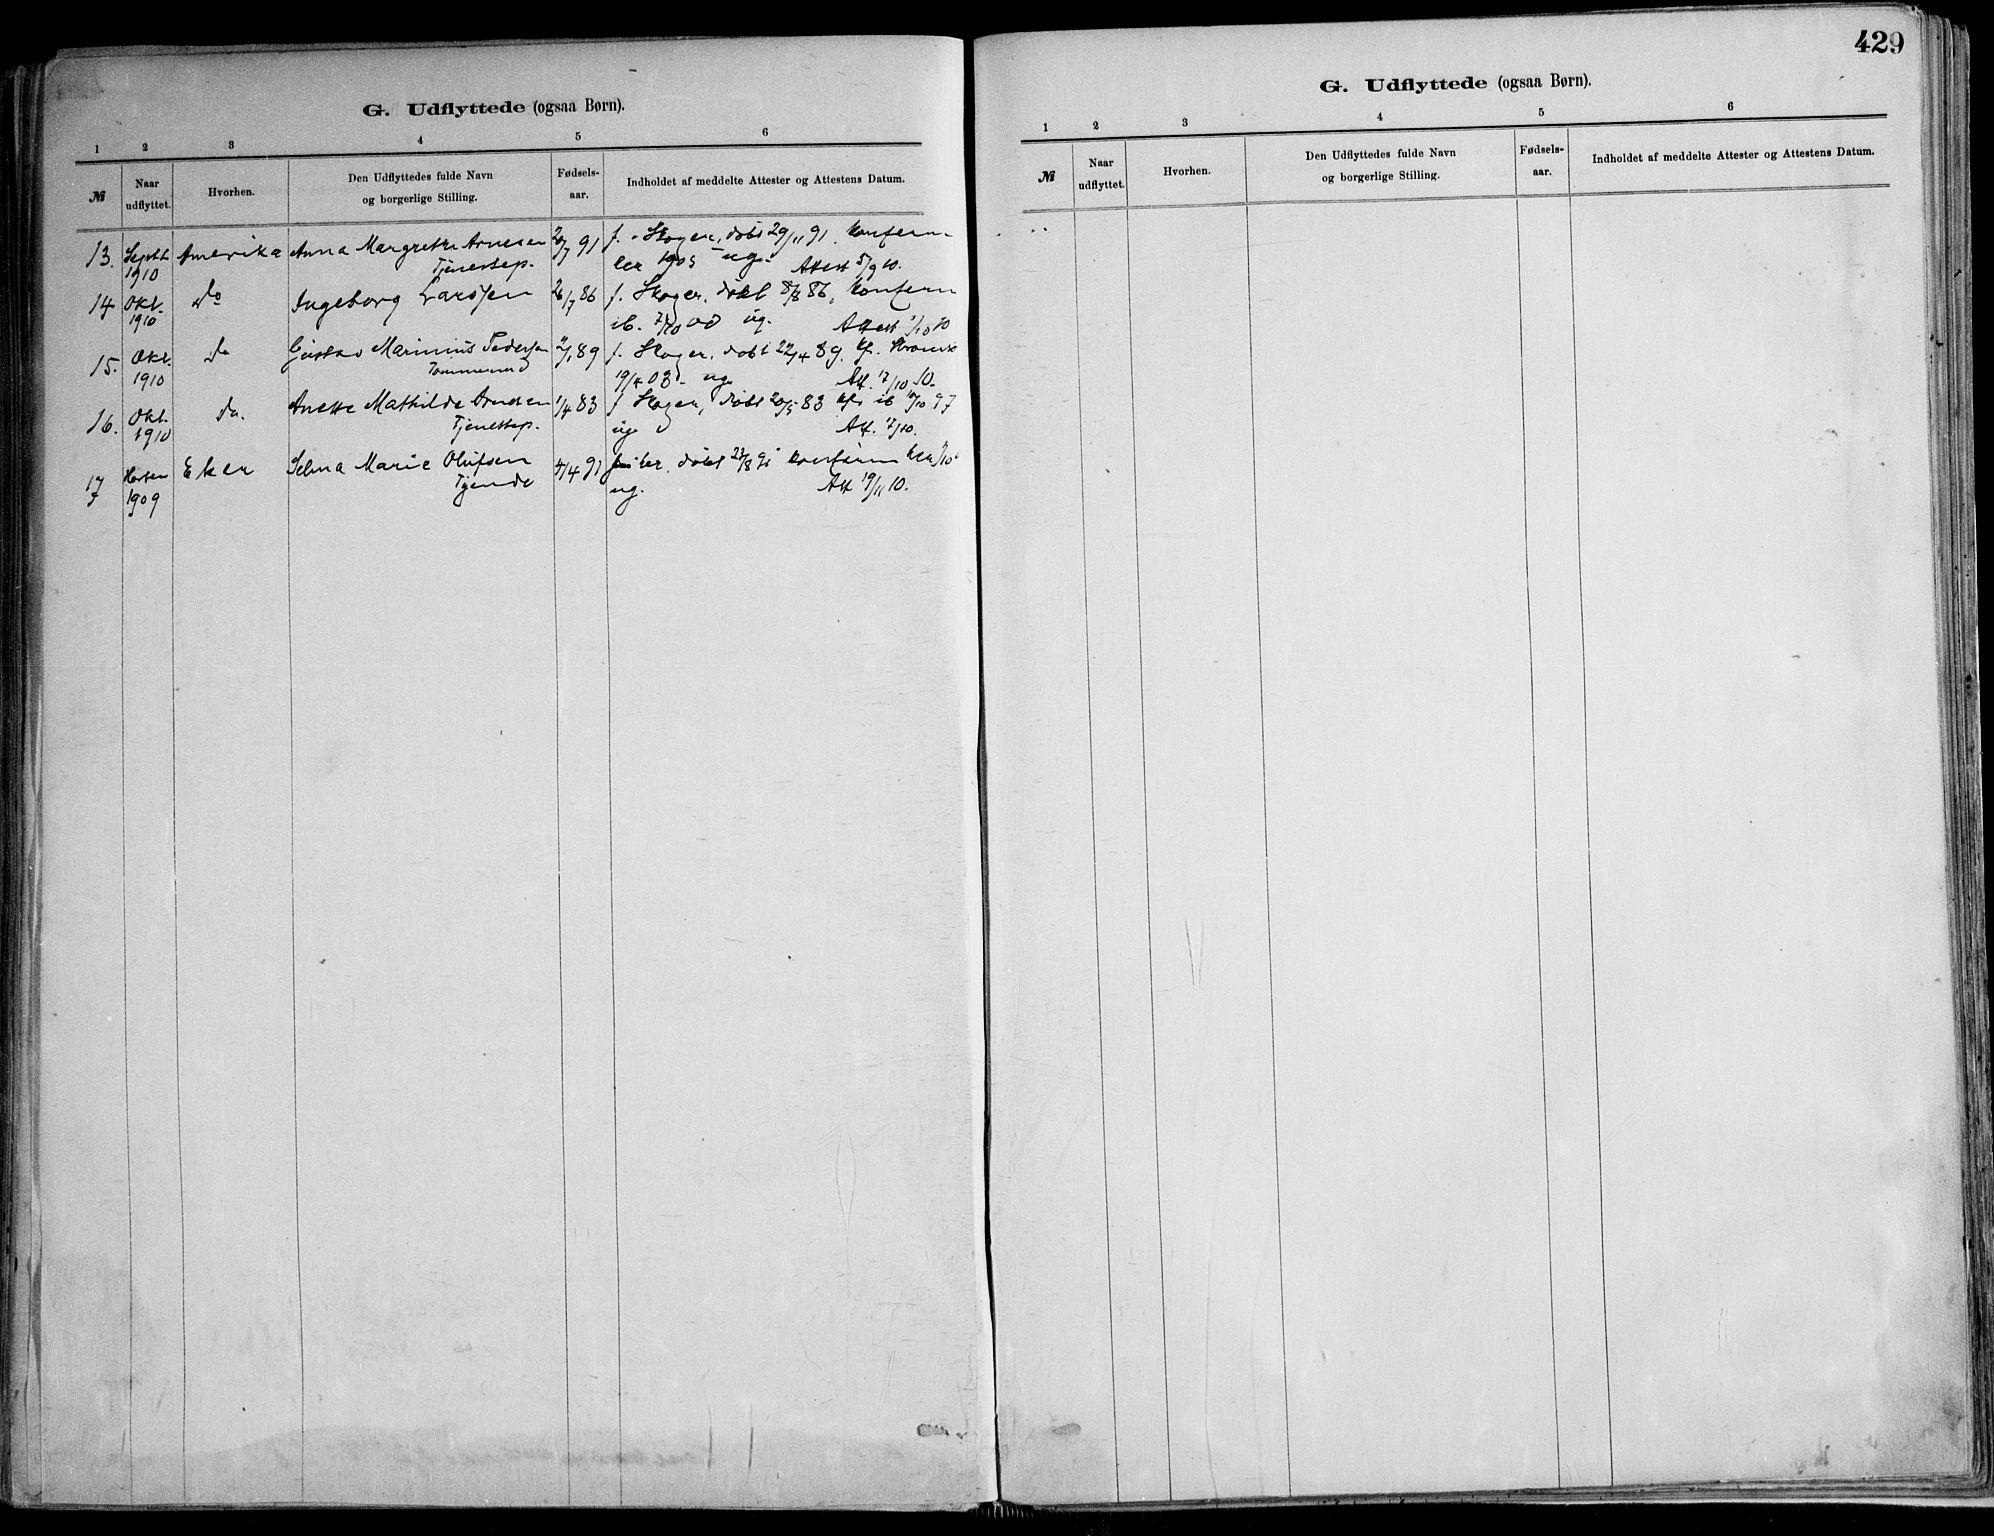 G. Udflyttede (ogsaa Børn).
1 2 3 4 5 6
№ Naar udflyttet. Hvorhen. Den Udflyttedes fulde Navn og borgerlige Stilling. Fødsels-aar. Indholdet af meddelte Attester og Attestens Datum.
13. Septb. 1910 Amerika Anna Margrethe Arnesen 20/7 91 f. Skoger, døbt 29/11 91. Konfirm-
Tjenestep. 1905 ug. Attest 5/9 10.
14 Okt. 1910 do Ingeborg Larssen 26/7 86 f. Skoger, døbt 8/8 86, Konfirm
ib. 7/10 ug. Attest 1/10 10
15. Okt. 1910 do Gustav Marinius Pedersen 2/1 89 f. Skoger, døbt 22/4 89, kf.
Tømmermd 19/4 03 - ug. Att. 17/10 10.
16. Okt. 1910 do. Anette Mathilde Arnesen 1/4 83 f Skoger, døbt 20/5 83 kf. ib 10/10 97
Tjenestep. ug Att. 17/10.
17 Høsten 1909 Eker Selma Marie Olufsen 4/4 91 døbt 23/8 91 konfirm
Tjende ug. Att 19/11 10.
429
G. Udflyttede (ogsaa Børn).
1 2 3 4 5 6
№ Naar udflyttet. Hvorhen. Den Udflyttedes fulde Navn og borgerlige Stilling. Fødsels-aar. Indholdet af meddelte Attester og Attestens Datum.